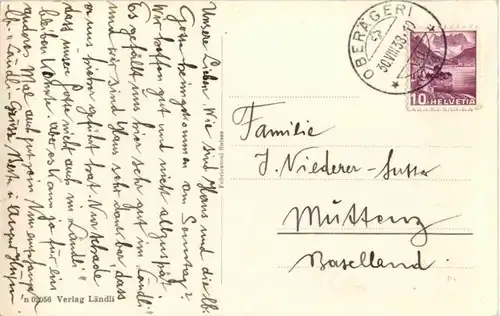 Unsere Lieben. Wie sind Hans und die lb.
heimgekommen am Sonntag?
Wir hoffen gut und nicht allzuspät!
Es gefällt uns hier sehr gut im Ländli
und wir sind Hans sehr dankbar dass
er uns hieher geführt hat. Nur schade
dass unser nicht auch im Ländli
bleiben konnte. aber es kann ja für ein
anderes Mal auch gut sein. Nun empfangen
Ländli-Grüsse, Berta u.
n 02056 Verlag Ländli
OBERÄGERI
30.VIII.38-10
10 HELVETIA
Familie
J. Niederer-Sutter
Muttenz
Baselland.